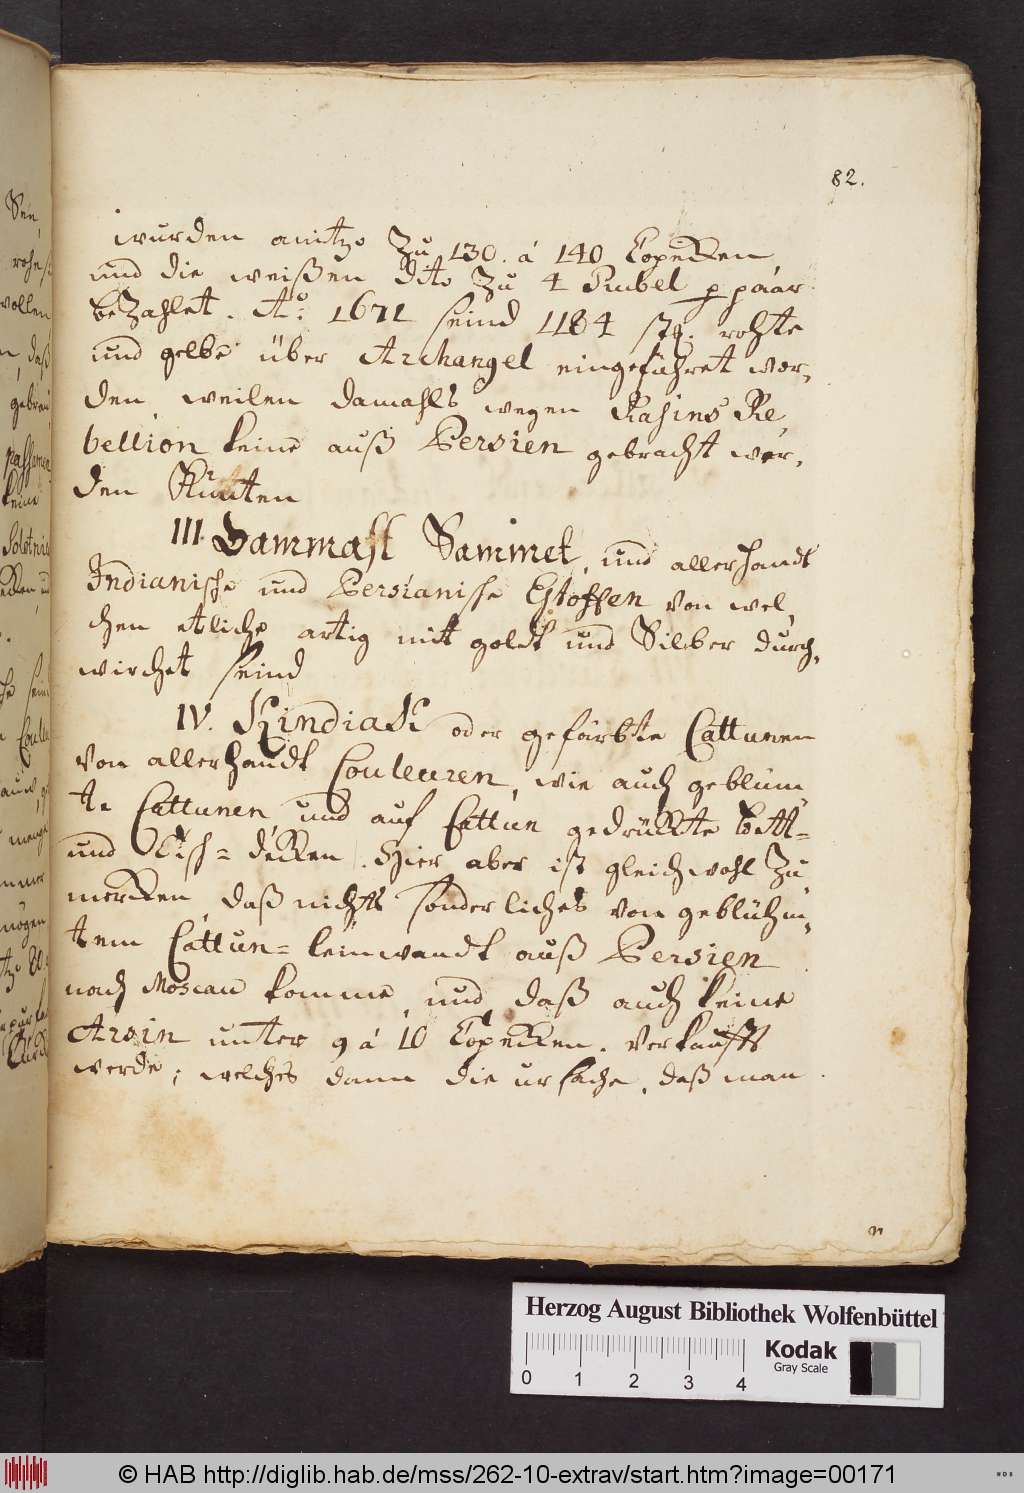 82.
wurden anitzo Zu 130. á 140 Copecken
und die weißen dito Zu 4 Rubel p paar
bezahlet. Aō: 1671 seind 1184 stg. rohte
und gelbe über Archangel eingeführet wor„
den, weilen damahls wegen Rasins Re„
bellion keine auß Persien gebracht wer„
den könten
III. Dammast Sammet, und allerhandt
Indianische und Persianische Estoffen von wel„
chen etliche artig mit goldt und Silber durch„
wirchet seind
IV. Kindiaki oder gefärbte Cattunen
von allerhandt Couleuren, wie auch geblüm„
te Cattunen und auf Cattun gedrückte bett=
und Tisch= decken. Hier aber ist gleichwohl Zu
mercken, daß nichts sonderliches von geblühm„
tem Cattun= leinwandt auß Persien
nach Moscau komme, und daß auch keine
Arsin unter 9 á 10 Copecken. verkaufft
werde; welches dann die ursache, daß man
Herzog August Bibliothek Wolfenbüttel
Kodak
Gray Scale
0 1 2 3 4
© HAB http://diglib.hab.de/mss/262-10-extrav/start.htm?image=00171